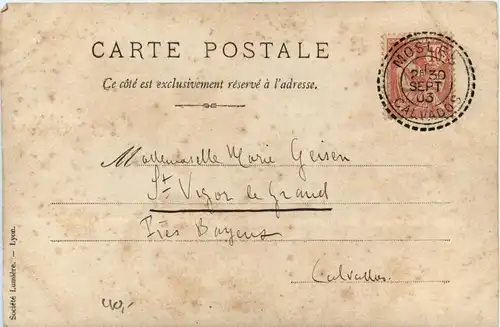 CARTE POSTALE
Ce côté est exclusivement réservé à l'adresse.
MOSLES
2E 30
SEPT
03
CALVADOS
Mademoiselle Marie Geisen
St Vigor le Grand
Près Bayeux
Calvados.
40,-
Société Lumière. — Lyon.